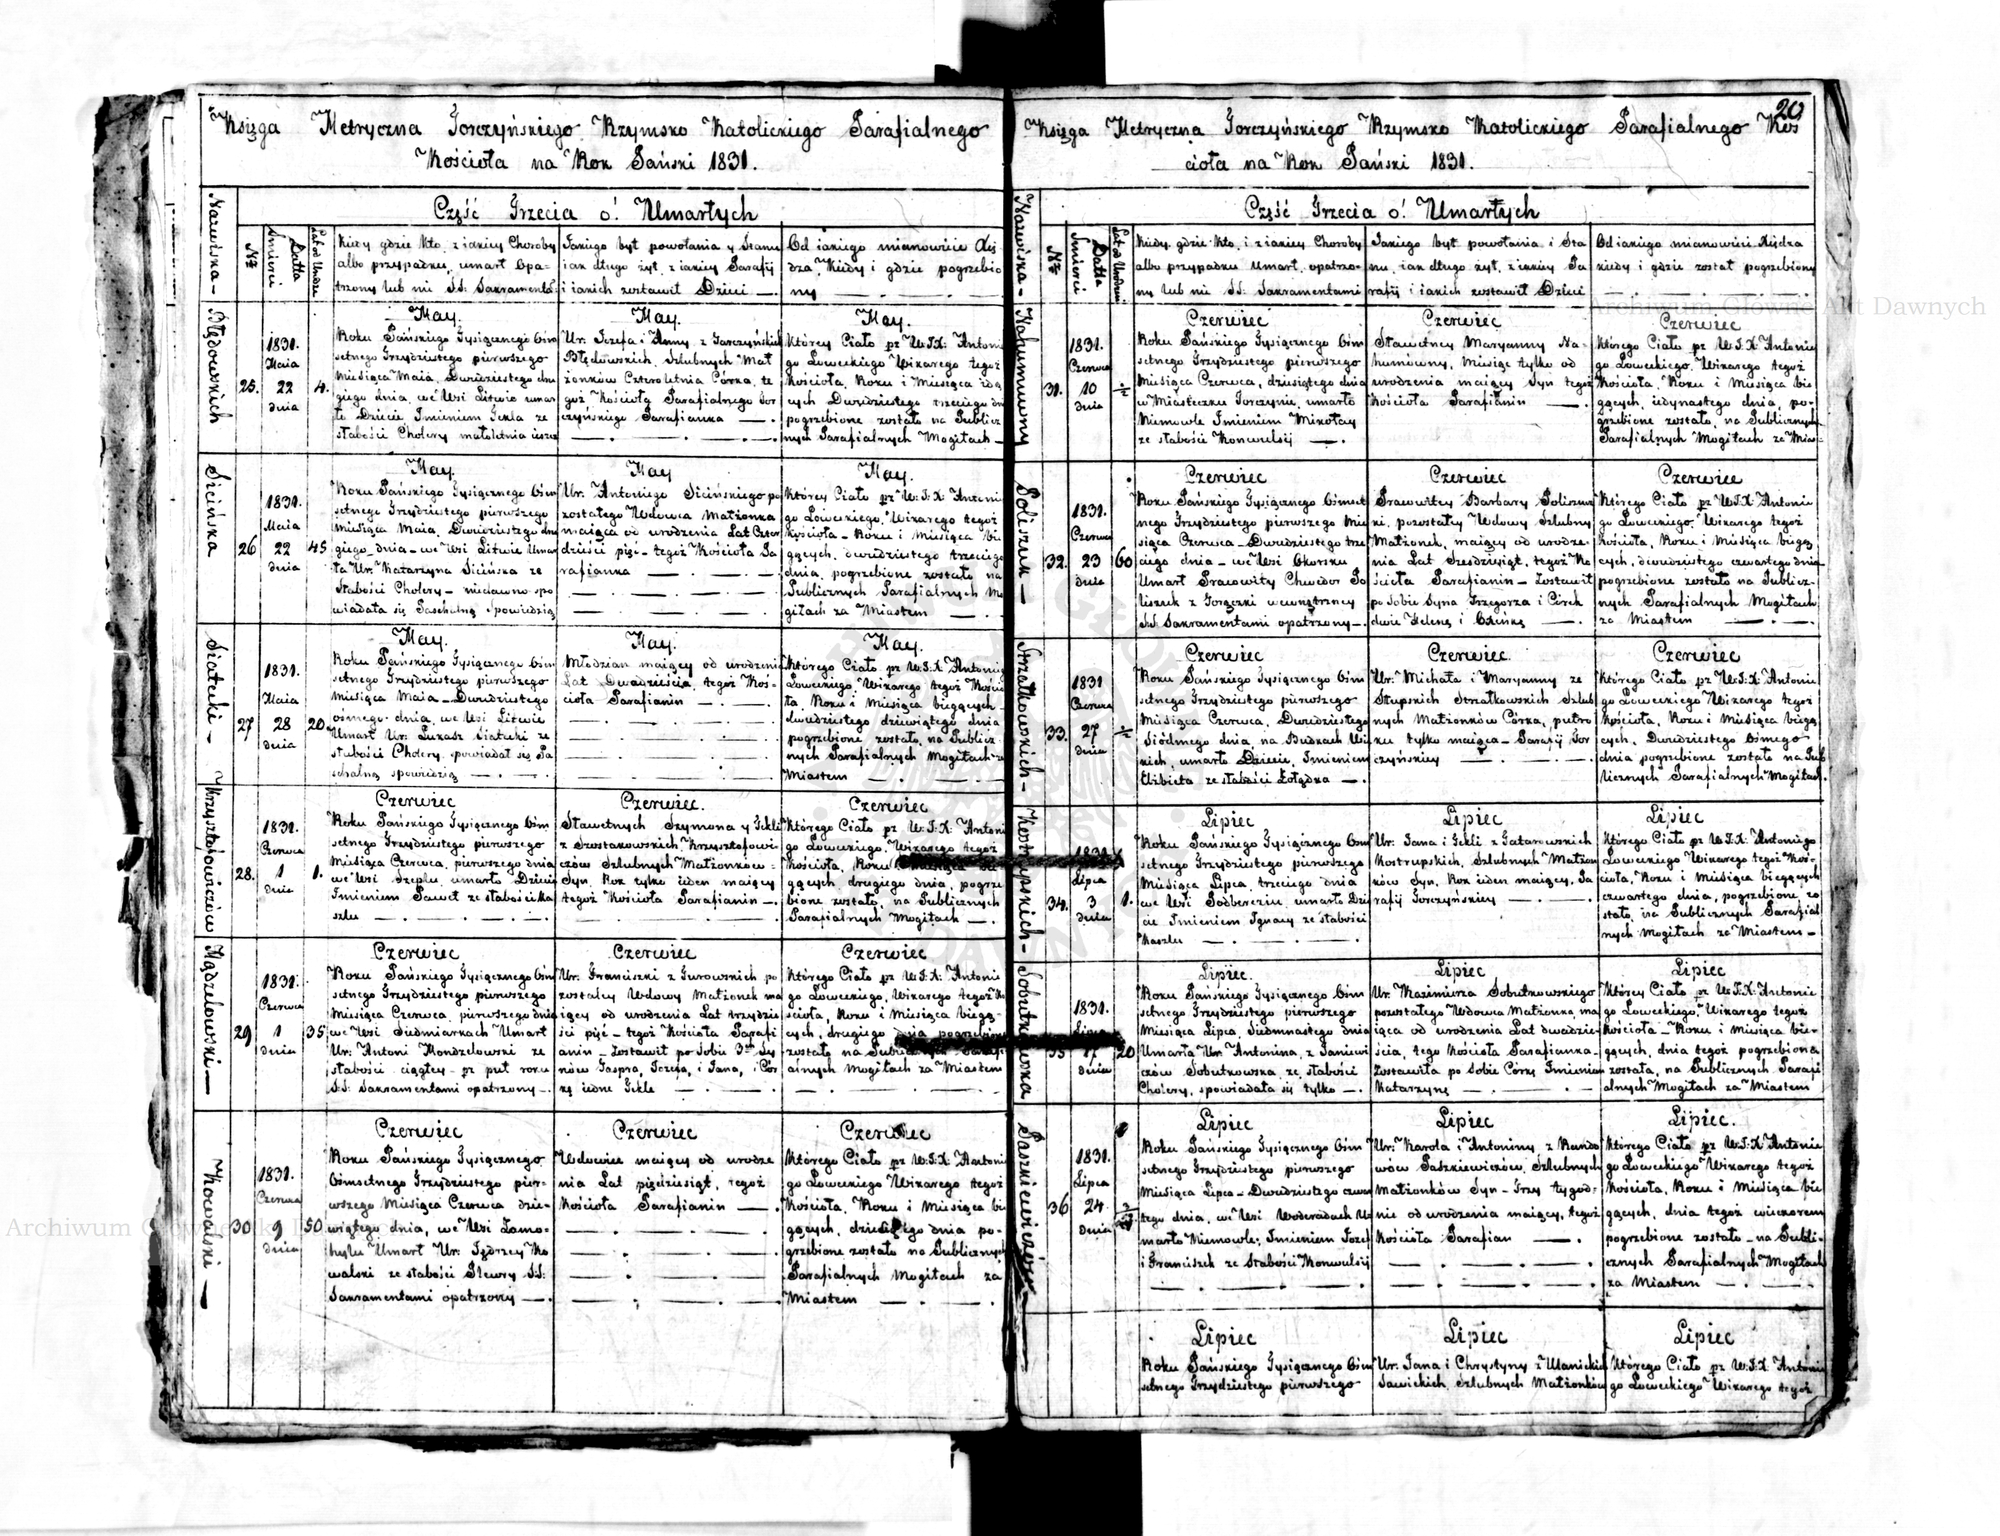 20
Księga Metryczna Torczyńskiego Rzymsko Katolickiego Parafialnego
Kościoła na Rok Pański 1831.
Nazwiska
Część Trzecia o! Umarłych
Nr
Datta Śmierci
Lat od Urodze
Kiedy gdzie kto, z iakiey Choroby
albo przypadku, umarł opa-
trzony lub nie S.S. Sakramenta
Iakiego był powołania y Stanu
iak długo żył, z iakiey Parafij
i iakich zostawił Dzieci
Od iakiego mianowicie Xię-
dza, Kiedy i gdzie pogrzebio
ny
Błędowskich
25.
1831.
Maia
22
dnia
4.
May.
Roku Pańskiego Tysiącznego Ośm
setnego Trzydziestego pierwszego
Miesiąca Maia, Dwudziestego dru
giego dnia, we Wsi Litwie umar
ło Dziecie Imieniem Tekla ze
słabości Cholery małoletnia iesz
May.
Ur. Iozefa i Anny z Garczyńskich
Błędowskich, Szlubnych Mał
żonków Czteroletnia Córka, te
goż Kościoła Parafialnego Tor
czyńskiego Parafianka
May.
Którey Ciało pz W.I.X. Antonie
go Łoweckiego Wikarego tegoż
Kościoła, Roku i Miesiąca idą
cych Dwudziestego trzeciego dn
pogrzebione zostało na Publicz
nych Parafialnych Mogiłach
Sicińska
26
1831.
Maia
22
dnia
45
May.
Roku Pańskiego Tysiącznego Ośm
setnego Trzydziestego pierwszego
Miesiąca Maia, Dwudziestego dru
giego dnia we Wsi Litwie Umar
ła Ur. Katarzyna Sicińska ze
Słabości Cholery niedawno spo
wiadała się Paschalną Spowiedzią
May
Ur. Antoniego Sicińskiego po
zostałego Wdowca Małżonka
maiąca od urodzenia Lat Czter
dzieści pięć tegoż Kościoła Pa
rafianka
May.
Którey Ciało pz W.I.X. Antonie
go Łoweckiego, Wikarego tegoż
Kościoła Roku i Miesiąca bie
gących, dwudziestego trzeciego
dnia, pogrzebione zostało na
Publicznych Parafialnych Mo
giłach za Miastem
Siatecki
27
1831.
Maia
28
dnia
20.
May.
Roku Pańskiego Tysiącznego Ośm
setnego Trzydziestego pierwszego
Miesiąca Maia Dwudziestego
ósmego dnia, we Wsi Litwie
Umarł Ur. Łukasz Siatecki ze
słabości Cholery, spowiadał się Pa
schalną spowiedzią
May.
Młodzian maiący od urodzenia
Lat Dwadzieścia, tegoż Koś-
cioła Parafianin
May.
Którego Ciało pz W.I.X. Antoniego
Łoweckiego, Wikarego tegoż Kościo
ła, Roku i Miesiąca bieżących
dwudziestego dziewiątego dnia
pogrzebione zostało, na Publicz
nych Parafialnych Mogiłach za
Miastem
Krzysztofowiczow
28.
1831.
Czerwca
1
dnia
1.
Czerwiec
Roku Pańskiego Tysiącznego Ośm
setnego Trzydziestego pierwszego
Miesiąca Czerwca, pierwszego dnia
we Wsi Szeplu, umarło Dziecie
Imieniem Paweł ze słabości Ka
szlu
Czerwiec.
Sławetnych Szymona y Tekli
z Szostakowskich Krzysztofowi
czów Szlubnych Małżonków
Syn, Rok tylko ieden maiący
tegoż Kościoła Parafianin
Czerwiec
Którego Ciało pz W.I.X. Antonie
go Łoweckiego, Wikarego tegoż
Kościoła, Roku i Miesiąca bie
gących, drugiego dnia, pogrze
bione zostało, na Publicznych
Parafialnych Mogiłach
29
1831.
Czerwca
1
dnia
35
Czerwiec
Roku Pańskiego Tysiącznego Ośm
setnego Trzydziestego pierwszego
Miesiąca Czerwca, pierwszego dnia
we Wsi Siedmiarkach Umarł
Ur. Antoni Mondzelowski ze
słabości ciągłey pz puł roku
S.S. Sakramentami opatrzony
Czerwiec
Ur. Franciszki z Gurowskich po
zostałey Wdowy Małżonek ma
iący od urodzenia Lat trzydzie
ści pięć tegoż Kościoła Parafi
anin Zostawił po sobie 3ch Sy
nów Gaspra, Iozefa, i Iana, i Cór
kę iedne Tekle
Czerwiec
Którego Ciało pz W.I.X. Antonie
go Łoweckiego, Wikarego tegoż Ko
ścioła, Roku i Miesiąca biegą-
cych, drugiego dnia pogrzebione
zostało na Publicznych Parafi
alnych Mogiłach za Miastem
Kowalski
30
1831.
Czerwca
9
dnia
50
Czerwiec
Roku Pańskiego Tysiącznego
Ośmsetnego Trzydziestego pier-
wszego Miesiąca Czerwca dzie-
wiątego dnia, we Wsi
Umarł Ur. Jędrzey Ko
walski ze słabości Plewry S.S.
Sakramentami opatrzony
Czerwiec
Wdowiec maiący od urodze
nia Lat pięćdziesiąt, tegoż
Kościoła Parafianin
Czerwiec
Którego Ciało pz W.I.X. Antonie
go Łoweckiego Wikarego tegoż
Kościoła, Roku i Miesiąca bie
gących, dnia po-
grzebione zostało na Publicznych
Parafialnych Mogiłach za
Miastem
Księga Metryczna Torczyńskiego Rzymsko Katolickiego Parafialnego Koś
cioła na Rok Pański 1831.
Nazwiska
Część Trzecia o! Umarłych
Nr
Datta Śmierci
Lat od Urodzeni
Kiedy gdzie kto, i z iakiey Choroby
albo przypadku umarł, opatrzo-
ny lub nie S.S. Sakramentami
Iakiego był powołania i Sta
nu, iak długo żył, z iakiey Pa
rafij i iakich zostawił Dzieci
Od iakiego mianowicie Xiędza
kiedy i gdzie został pogrzebiony
31.
1831.
Czerwca
10
dnia
Czerwiec
Roku Pańskiego Tysiącznego Ośm
setnego Trzydziestego pierwszego
Miesiąca Czerwca, dziesiątego dnia
w Miasteczku Torczynie, umarło
Niemowle Imieniem Mikołay
ze słabości Konwulsij
Czerwiec
Sławetney Maryanny Na-
humówny, Miesiąc tylko od
urodzenia maiący Syn tegoż
Kościoła Parafianin
Czerwiec
Którego Ciało pz W.I.X Antonie
go Łoweckiego, Wikarego tegoż
Kościoła, Roku i Miesiąca bie
gących, iedynastego dnia, po-
grzebione zostało, na Publicznych
Parafialnych Mogiłach za Mias-
Poliszuk
32.
1831.
Czerwca
23
dnia
60
Czerwiec
Roku Pańskiego Tysiącznego Ośmset
nego Trzydziestego pierwszego Mie
siąca Czerwca Dwudziestego trze
ciego dnia we Wsi Okorsku
Umarł Pracowity Chwedor Po
liszuk z Gorączki wewnętrzney
S.S. Sakramentami opatrzony
Czerwiec
Pracowitey Barbary Poliszu
ki, pozostałey Wdowy Szlubny
Małżonek, maiący od urodze-
nia Lat Sześdziesiąt, tegoż Ko
ścioła Parafianin Zostawił
po sobie Syna Grzegorza i Córek
dwie Helenę i
Czerwiec
Którego Ciało pz W.I.X Antonie
go Łoweckiego, Wikarego tegoż
Kościoła, Roku i Miesiąca bieżą
cych, dwudziestego czwartego dnia
pogrzebione zostało na Publicz-
nych Parafialnych Mogiłach
za Miastem
Strzałkowskich
33.
1831
Czerwca
27
dnia
Czerwiec
Roku Pańskiego Tysiącznego Ośm
setnego Trzydziestego pierwszego
Miesiąca Czerwca, Dwudziestego
Siódmego dnia, na Budkach Wi
nich, umarło Dziecie, Imieniem
Elżbieta ze słabości Żołądka
Czerwiec.
Ur. Michała i Maryanny ze
Słupskich Strzałkowskich Szlub
nych Małżonków Córka, pułro
ku tylko maiąca Parafij Tor
czyńskiey
Czerwiec
Którego Ciało pz W.I.X Antonie
go Łoweckiego Wikarego tegoż
Kościoła, Roku i Miesiąca bieżą
cych, Dwudziestego Ósmego
dnia pogrzebione zostało na Pub
licznych Parafialnych Mogiłach.
Kostrupskich
34.
1831
Lipca
3
dnia
1.
Lipiec
Roku Pańskiego Tysiącznego Ośm
setnego Trzydziestego pierwszego
Miesiąca Lipca, trzeciego dnia
we Wsi Sadberezie, umarło Dzi
cie Imieniem Ignacy ze słabości
Kaszlu
Lipiec
Ur. Iana i Tekli z Gatarowskich
Kostrupskich, Szlubnych Małżon
ków Syn, Rok ieden maiący, Pa
rafij Torczyńskiey
Lipiec
Którego Ciało pz W.I.X. Antoniego
Łoweckiego Wikarego tegoż Koś-
cioła, Roku i Miesiąca bieżących
czwartego dnia, pogrzebione zo
stało, na Publicznych Parafial
nych Mogiłach za Miastem
Sobutkowska
35
1831.
Lipca
17
dnia
20
Lipiec.
Roku Pańskiego Tysiącznego Ośm
setnego Trzydziestego pierwszego
Miesiąca Lipca, Siedmnastego dnia
Umarła Ur. Antonina, z Janiewi
czów Sobutkowska ze słabości
Cholery, spowiadała się tylko
Lipiec
Ur. Kazimierza Sobutkowskiego
pozostałego Wdowca Małżonka, ma
iąca od urodzenia Lat dwadzie-
ścia, tego Kościoła Parafianka
Zostawiła po sobie Córkę Imieniem
Katarzynę
Lipiec
Którey Ciało pz W.I.X. Antonie
go Łoweckiego, Wikarego tegoż
Kościoła Roku i Miesiąca bie-
gących, dnia tegoż pogrzebiona
została, na Publicznych Parafi
alnych Mogiłach za Miastem
Paszkiewiczów
36
1831.
Lipca
24.
dnia
Lipiec
Roku Pańskiego Tysiącznego Ośm
setnego Trzydziestego pierwszego
Miesiąca Lipca Dwudziestego czwar
tego dnia, we Wsi Woderadach U
marło Niemowle, Imieniem Iozef
i Franciszek ze Słabości Konwulsij
Lipiec
Ur. Karola i Antoniny z Rando
wów Paszkiewiczów, Szlubnych
Małżonków Syn Trzy tygod-
nie od urodzenia maiący, tegoż
Kościoła Parafian
Lipiec.
Którego Ciało pz W.I.X Antonie
go Łoweckiego Wikarego tegoż
Kościoła, Roku i Miesiąca bie
gących, dnia tegoż wieczorem
pogrzebione zostało na Publi-
cznych Parafialnych Mogiłach
za Miastem
Lipiec
Roku Pańskiego Tysiącznego Ośm
setnego Trzydziestego pierwszego
Lipiec
Ur. Iana i Chrystyny z Ulanickich
Sawickich, Szlubnych Małżonków
Lipiec
Którego Ciało pz W.I.X. Antonie
go Łoweckiego Wikarego tegoż
Archiwum Główne Akt Dawnych